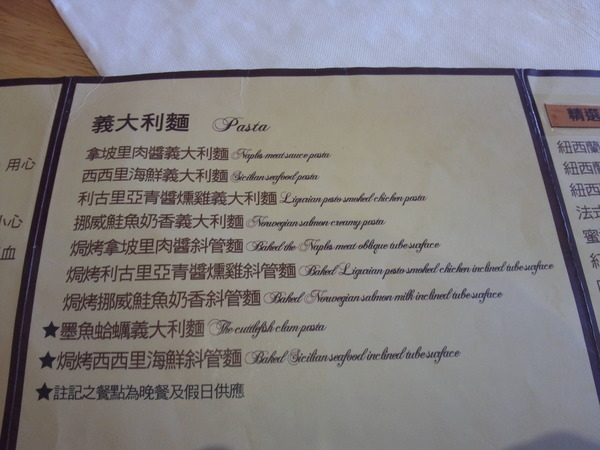 義大利麵 Pasta
拿坡里肉醬義大利麵 Naplis meat sauce pasta
西西里海鮮義大利麵 Sicilian seafood pasta
利古里亞青醬燻雞義大利麵 Liguian pesto smoked chicken pasta
挪威鮭魚奶香義大利麵 Norwegian salmon creamy pasta
焗烤拿坡里肉醬斜管麵 Baked the Naplis meat oblique tube surface
焗烤利古里亞青醬燻雞斜管麵 Baked Liguian pesto smoked chicken inclined tube surface
焗烤挪威鮭魚奶香斜管麵 Baked Norwegian salmon milk inclined tube surface
★墨魚蛤蠣義大利麵 The cuttlefish clam pasta
★焗烤西西里海鮮斜管麵 Baked Sicilian seafood inclined tube surface
★註記之餐點為晚餐及假日供應
用心
小心
血
精選
紐西蘭
紐西蘭
紐西
法式
蜜